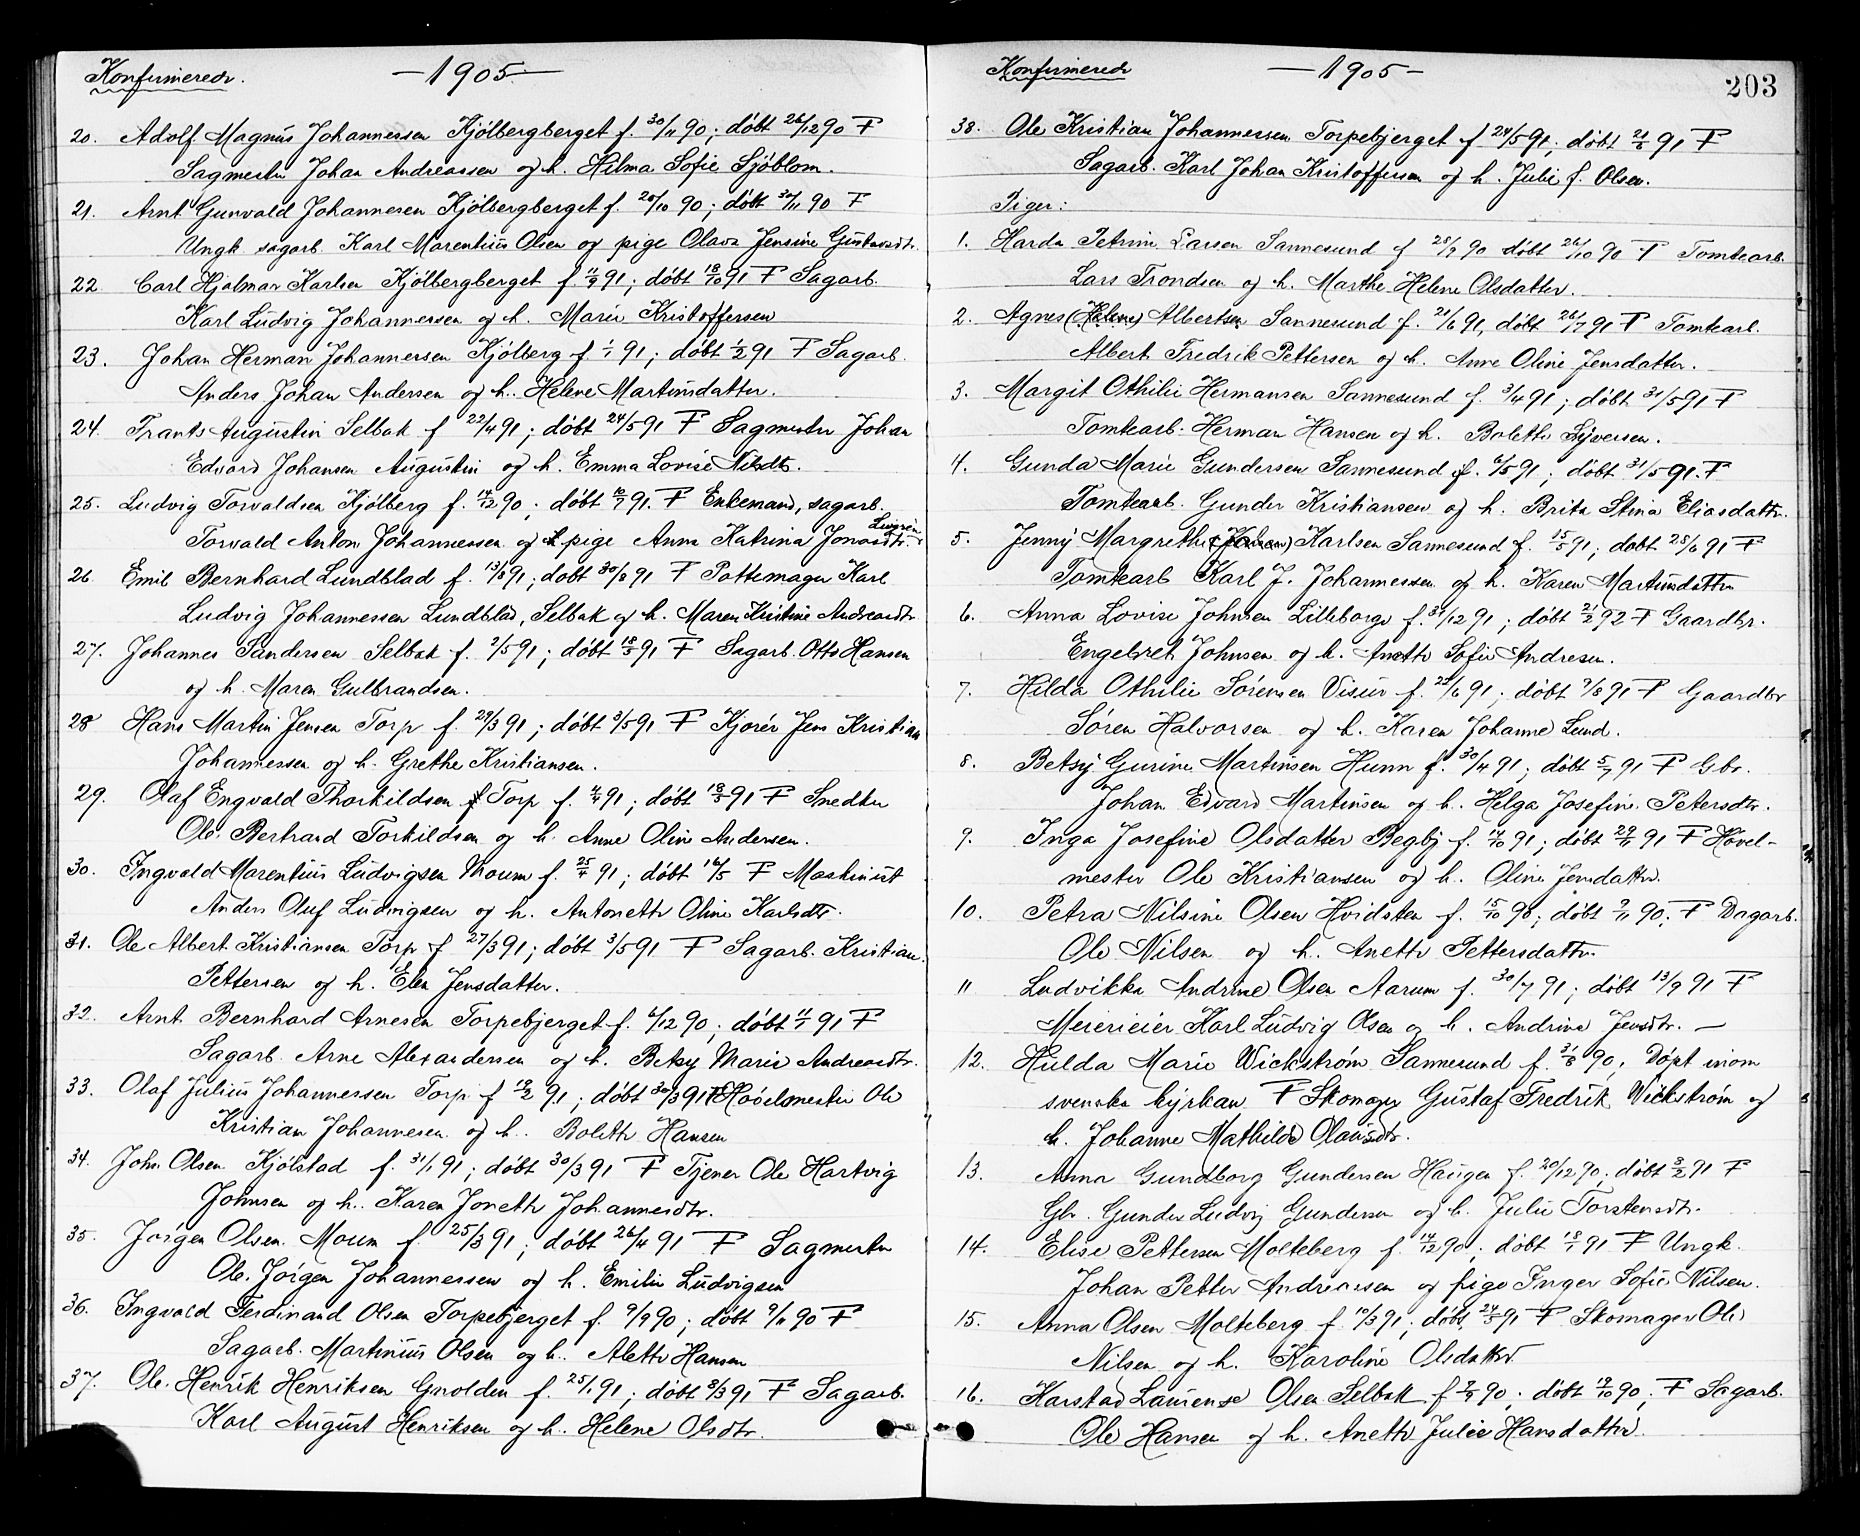 Konfirmerede. —1905.—
20. Adolf Magnus Johannessen Kjölbergberget f. 30/11 90; döbt 26/12 90 F
Sagmester Johan Andreassen og h. Hilma Sofie Sjöblom.
21. Arnt Gunvald Johannesen Kjölbergberget f. 20/10 90; döbt 30/11 90 F
Ungk. sagarb. Karl Marentius Olsen og pige Olava Jensine Gustavsdtr.
22 Carl Hjalmar Karlsen Kjölbergberget f. 11/9 91; döbt 18/10 91 F Sagarb.
Karl Ludvig Johannessen og h. Marie Kristoffersen
23. Johan Herman Johannersen Kjölberg f 1/1 91; döbt 1/2 91 F Sagarb.
Anders Johan Andersen og h. Helene Martinsdatter.
24. Frants Augustin Selbak f 22/4 91; döbt 24/5 91 F Sagmester Johan
Edvard Johansen Augustin og h. Emma Lovise Nilsdtr.
25. Ludvig Torvaldsen Kjölberg f. 14/12 90; döbt 91. F Enkemand, sagarb.
Torvald Anton Johannessen og pige Anna Katrina Jonasdtr.
26 Emil Bernhard Lundblad f. 13/8 91; döbt 30/8 91 F Pottemager Karl
Ludvig Johannessen Lundblad, Selbak og h. Maren Kristine Andreasdtr
27. Johannes Sandersen Selbak f. 2/5 91; döbt 18/5 91 F Sagarb. Otto Hansen
og h. Maren Gulbrandsen.
28 Hans Martin Jensen Torp f. 29/3 91; döbt 3/5 91 F Kjörer Jens Kristian
Johannessen og h. Grethe Kristiansen.
29. Olaf Engvald Thorkildsen Torp f. 4/4 91; döbt 18/5 91 F Snedker
Ole Bertrand Torkildsen og h. Anne Oline Andersen.
30. Ingvald Marentius Ludvigsen Moum f. 25/4 91; döbt 16/5 F Maskinist
Anders Oluf Ludvigsen og h. Antonette Oline Karlsdtr.
31. Ole Albert Kristiansen Torp f 27/3 91; döbt 3/5 91 F Sagarb. Kristian
Pettersen og h. Elen Jensdatter.
32. Arnt Bernhard Arnesen Torpebjerget f. 6/12 90; döbt 11/1 91 F
Sagarb. Arne Alexandersen og h. Betsy Marie Andreasdtr.
33. Olaf Julius Johannessen Torp f 18/2 91; döbt 30/3 91 F Hövelmester Ole
Kristian Johannesen og h. Bolette Hansen
34. John Olsen Kjölstad f. 31/1 91; döbt 30/3 91 F Tjener Ole Hartvig
Johnsen og h. Karen Jonette Johannesdtr.
35. Jörgen Olsen Moum f. 25/3 91; döbt 26/4 91 F Sagmester
Ole Jörgen Johannessen og h. Emilie Ludvigsen
36. Ingvald Ferdinand Olsen Torpebjerget f. 9/9 90; döbt 9/11 90 F
Sagarb. Martinius Olsen og h. Alette Hansen
37. Ole Henrik Henriksen Grolden f. 25/1 91; döbt 8/3 91 F Sagarb.
Karl August Henriksen og h. Helene Olsdtr.
Konfirmerede —1905— 203
38. Ole Kristian Johannersen Torpebjerget f 24/5 91; döbt 21/6 91 F
Sagarb. Karl Johan Kristoffersen og h. Julie f. Olsen.
Piger:
1. Harda Petrine Larsen Sannesund f 28/9 90 döbt 26/10 90 F Tomtearb.
Lars Trondsen og h. Marthe Helene Olsdatter.
2. Agnes (Helene) Albertsen Sannesund f. 21/6 91, döbt 26/7 91 F Tomtearb.
Albert Fredrik Pettersen og h. Anne Oline Jensdatter.
3. Margit Othilie Hermansen Sannesund f. 3/4 91; döbt 31/5 91 F
Tomtearb. Herman Hansen og h. Bolette Syversen.
4. Gunda Marie Gundersen Sannesund f. 6/5 91; döbt 31/5 91. F
Tomtearb. Gunder Kristiansen og h. Brita Stina Eliasdatter.
5. Jenny Margrethe Karlsen Sannesund f. 15/5 91; döbt 28/6 91 F
Tomtearb Karl J. Johannessen og h. Karen Martinsdatter
6. Anna Lovise Johnsen Lilleborge f. 31/12 91; döbt 21/2 92 F Gaardbr.
Engelret Johnsen og h. Anette Sofie Andresen.
7. Hilda Othilie Sörensen Visur f. 25/6 91; döbt 2/8 91 F Gaardbr
Sören Halvorsen og h. Karen Johanne Lund.
8. Betsy Gurine Martinsen Hunn f. 30/4 91; döbt 5/7 91 F Gbr.
Johan Edvard Martinsen og h. Helga Josefine Petersdtr.
9. Inga Josefine Olsdatter Begby f. 14/10 91; döbt 29/11 91 F Hövel-
mester Ole Kristiansen og h. Oline Jensdatter.
10. Petra Nilsine Olsen Hvidsten f. 15/10 90; döbt 9/11 90. F Dagarb.
Ole Nilsen og h. Anette Pettersdatter.
11 Ludvikka Andrine Olsen Aarum f. 30/7 91; döbt 13/9 91 F
Meierieier Karl Ludvig Olsen og h. Andrine Jensdtr. —
12. Hulda Marie Wickström Sannesund f. 31/8 90. Döpt inom
svenska kyrkan F Skomager Gustaf Fredrik Wickström og
h. Johanne Mathilde Olausdtr.
13. Anna Gundborg Gundersen Haugen f. 20/12 90; döbt 8/2 91 F
Gbr. Gunder Ludvig Gundersen og h. Julie Torstensdtr.
14. Elise Pettersen Molteberg f. 14/12 90. döbt 18/1 91 F Ungk.
Johan Petter Andreassen og pige Inger Sofie Nilsen.
15. Anna Olsen Molteberg f. 10/3 91; döbt 24/5 91 F Skomager Ole
Nilsen og h. Karoline Olsdatter
16. Harstad Laurense Olsen Selbak f 90. döbt 19/10 90; F Sagarb.
Ole Hansen og h. Anette Julie Hansdatter.